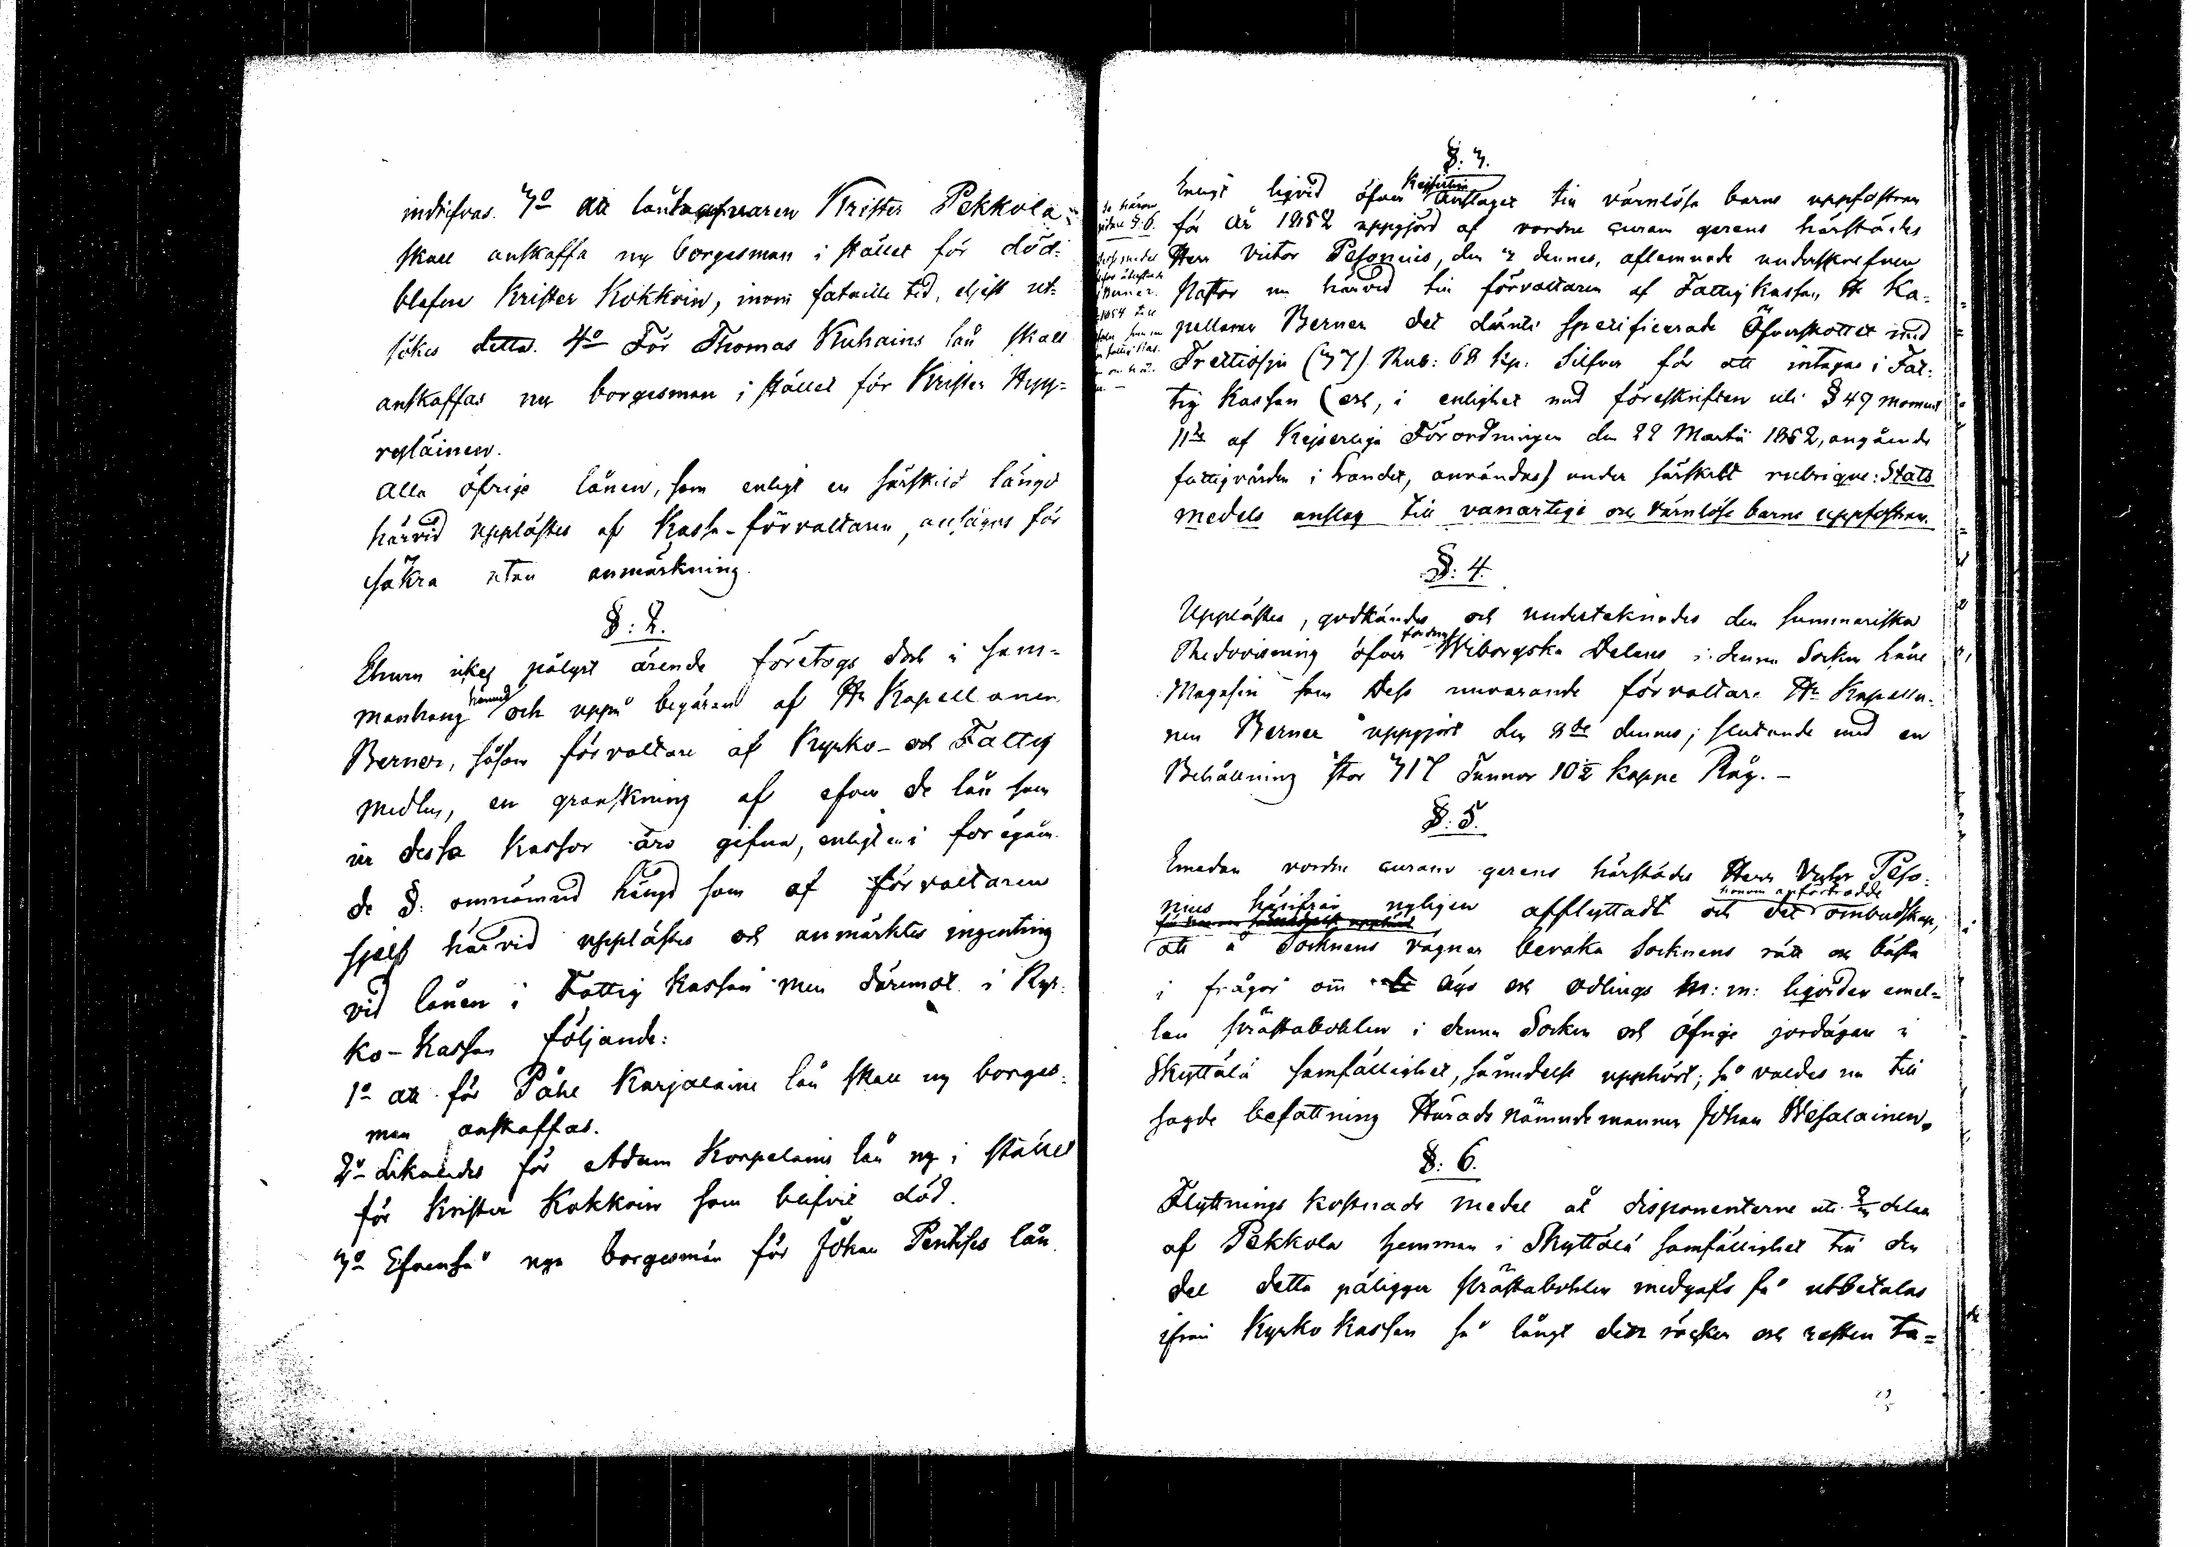 indrifvas. 3o att låntagaren Krister Pekkola
skall anskaffa ny borgesman i stället för död-
blefne Krister Kokkoin, inom fatalie tid, eljest ut-
sökes detta. 4o För Thomas Kuhains lån skall
anskaffas ny borgesman i stället för Krister Hyy-
ryläinen.
Alla öfrige lånen, som enligt en särskild längd
härvid upplästes af Kassa-förvaltaren, ansågos för
säkra utan anmärkning.
§: 2.
Ehuru icke pålyst ärende företogs dock i sam-
manhang härmed och uppå begäran af Hr Kapellanen
Berner, såsom förvaltare af Kyrko- och Fattig
medlen, en granskning af äfven de lån som
ur dessa Kassor äro gifna, enligt en i föregåen-
de §: omnämnd längd som af förvaltaren
sjelf härvid upplästes och anmärktes ingenting
vid lånen i Fattig Kassan men däremot i Kyr-
ko-Kassan följande:
1o att för Påhl Karjalains lån skall ny borges-
man anskaffas.
2o Likaledes för Adam Korpelains lån ny i stället
för Krister Kokkoin som blifvit död.
3o Efvenså nya borgesmän för Johan Pentises lån
§: 3.
Enligt liqvid öfver Kejserliga Anslaget till värnlösa barns uppfostran
för år 1852 uppgjord af vordne curam gerens härstädes
Herr Victor Pesonius, den 2 dennes, aflemnade underskrefven
Pastor nu härvid till förvaltaren af Fattig Kassan, Hr Ka-
pellanen Berner det däruti specificerade Öfverskottet med
Trettiosju (37) Rub: 68 kop. Silfver för att intagas i Fat-
tig Kassan (och, i enlighet med föreskriften uti § 49 moment
11 af Kejserliga Förordningen den 22 Martii 1852, angående
fattigvården i Landet, användas) under särskildt rubrique: Stats
medels anslag till vanartige och värnlösa barns uppfostran.
§: 4.
Upplästes, godkändes och undertecknades den summariska
Redovisning öfver fordna Wiborgska Delens i denna Socken Låne
Magasin som Dess nuvarande förvaltare Hr Kapella-
nen Berner uppgjort den 8de dennes; slutande med en
Behållning stor 317 Tunnor 10½ kappe Råg. -
§: 5.
Emedan vordne curam gerens härstädes Herr Victor Peso-
nius härifrån nyligen afflyttadt och det honom anförtrodde ombudskap,
att å Socknens vägnar bevaka Socknens rätt och bästa
i frågor om ägo och odlings m: m: liqvider emel-
lan prästabohlen i denna Socken och öfrige jordägare i
Skyttälä samfällighet, såmedelst upphört; så valdes nu till
sagde befattning Härads Nämndemannen Johan Wesalainen.
§: 6.
Flyttnings kostnads medel åt disponenterne uti delen
af Pekkola hemman i Skyttälä samfällighet till den
del detta påligger prästabohlen medgafs få utbetalas
ifrån Kyrko Kassan så långt den räcker och resten ta-